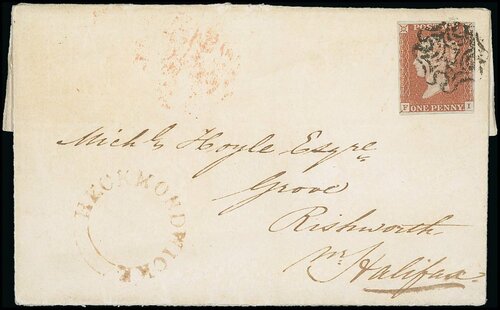 POSTAGE
F I
ONE PENNY
Mich.l Hoyle Esqre
Grove
Rishworth
nr. Halifax.
HECKMONDWICKE